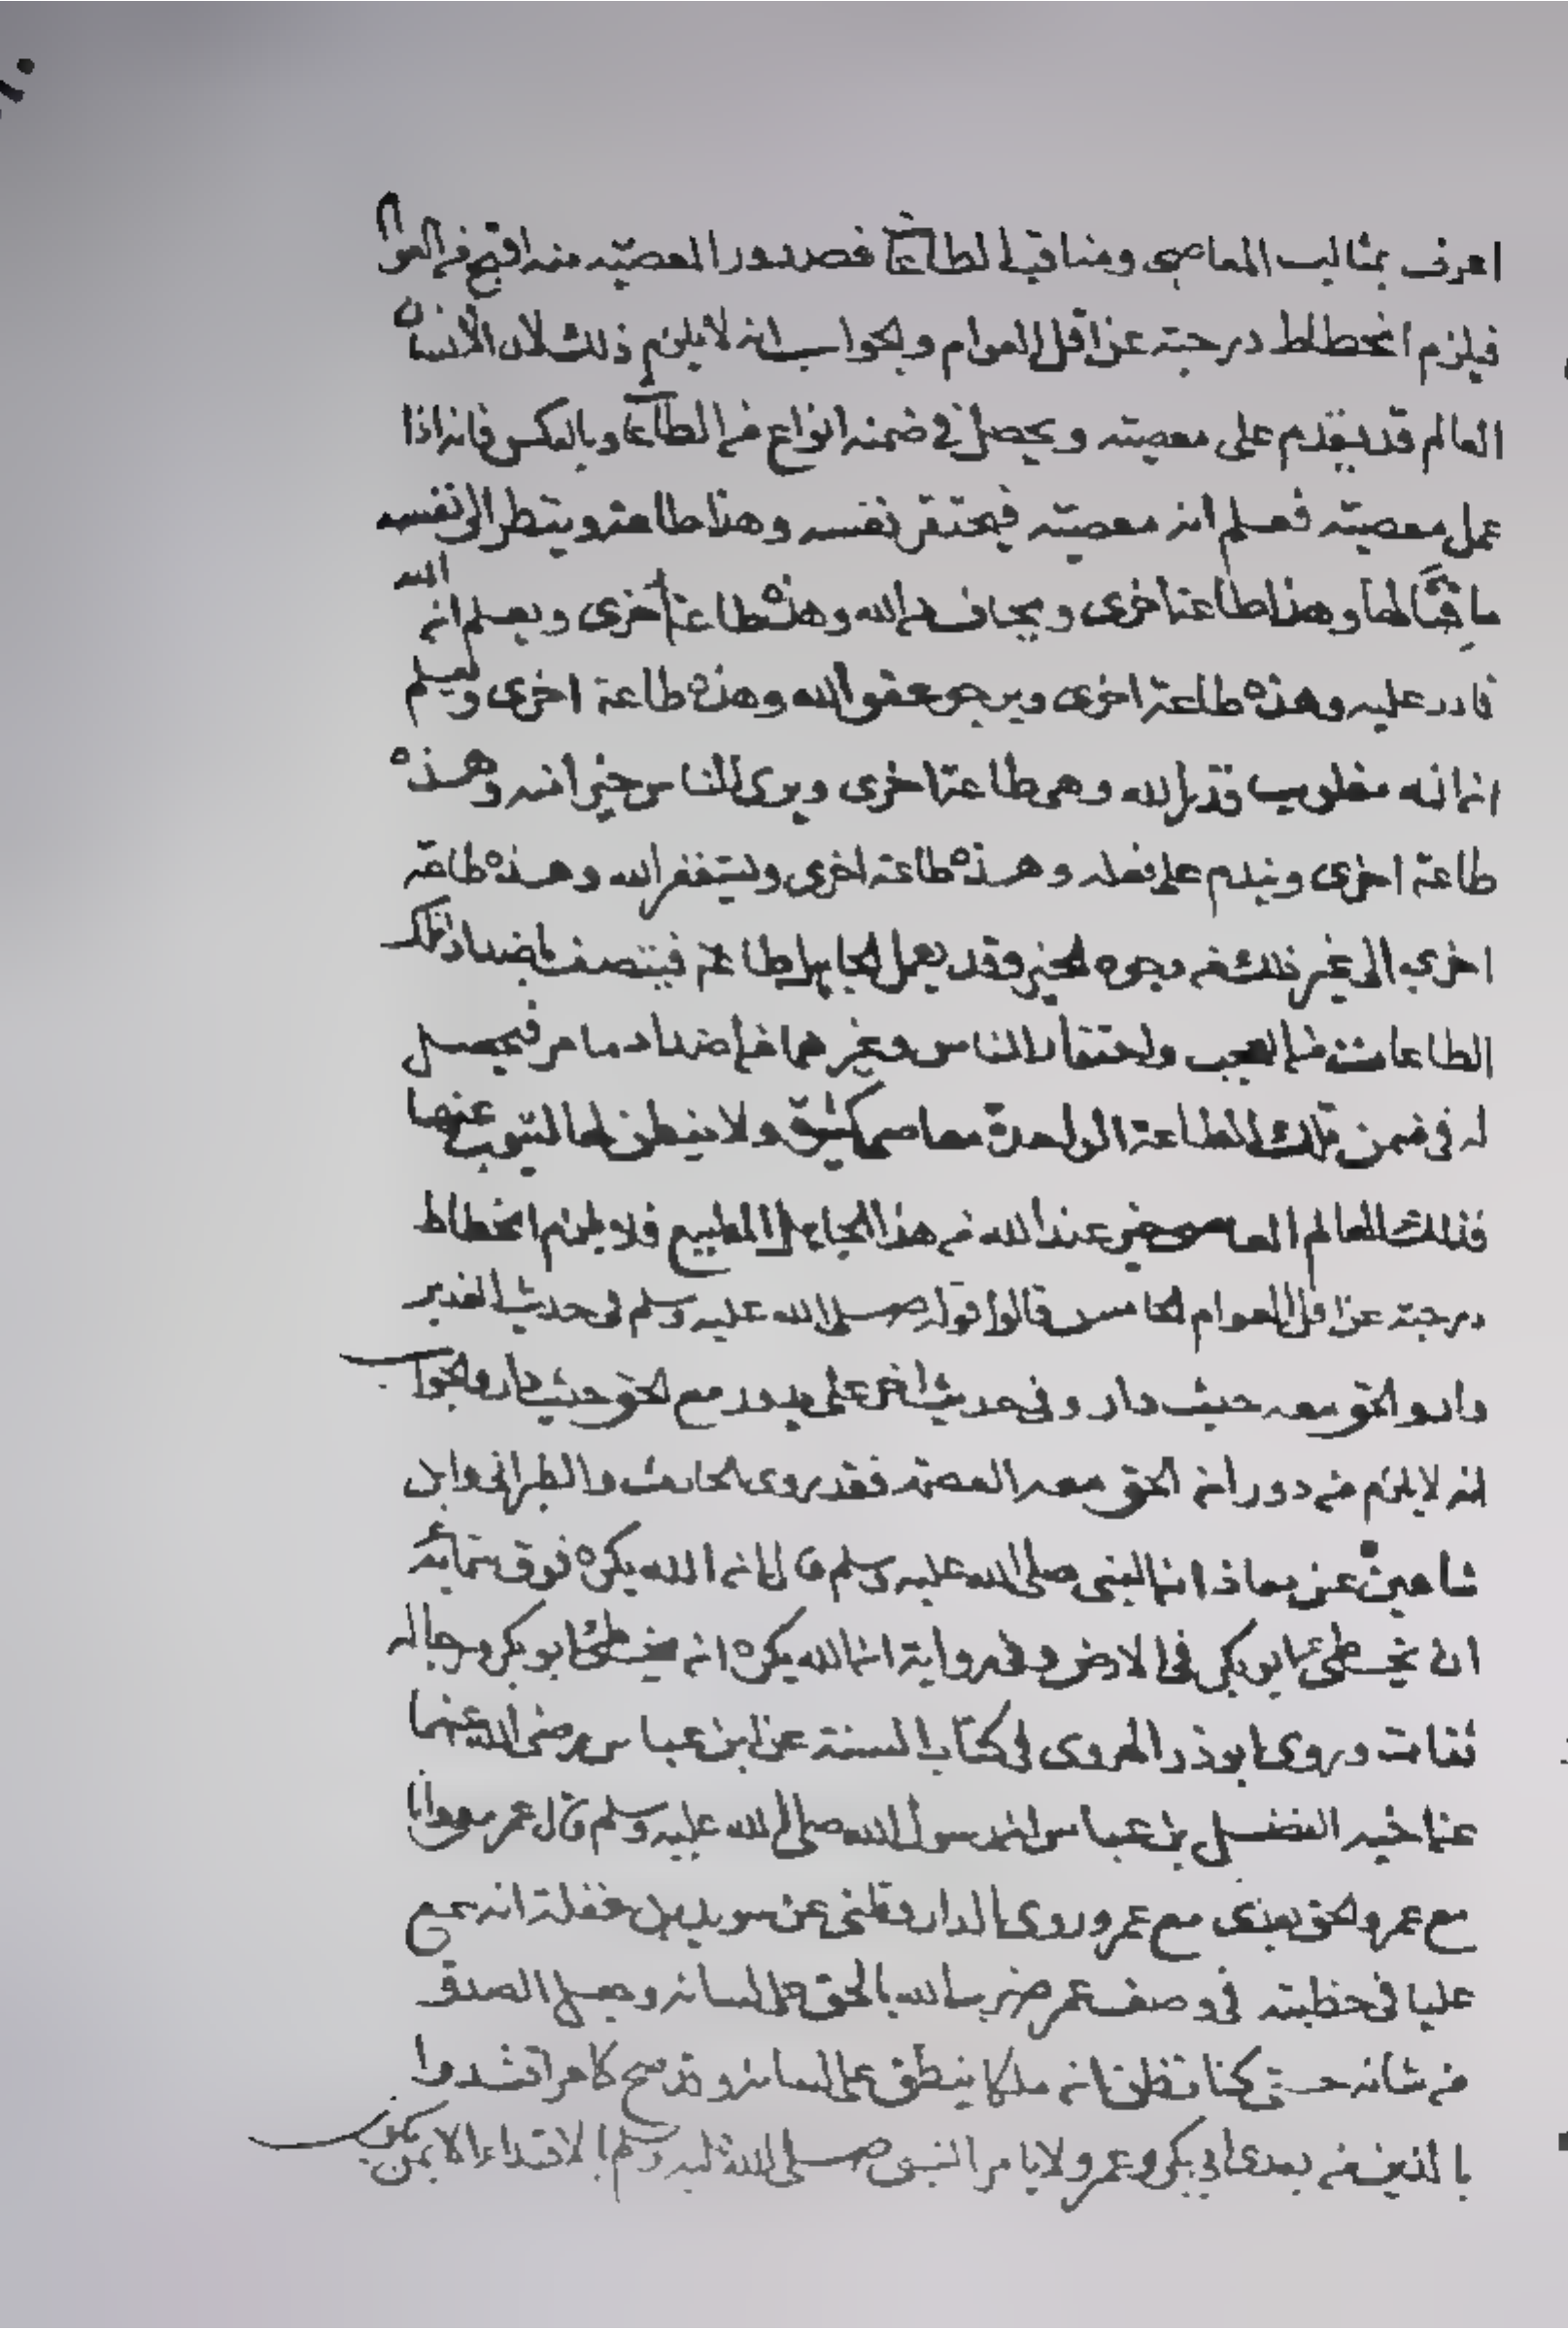 اعرف بمثالب المعاصى ومناقب الطاعات فصدور المعصية منه اقبح من العوام
فيلزم انحطاط درجته عن اقل العوام والجواب انه لا يلزم ذلك لان الانسان
العالم قد يقدم على معصيته ويحصل فى ضمنه انواع من الطاعات وبالعكس فانه اذا
عمل معصيته فعلم انه معصيته فيحتقر نفسه وهذا طاعة وينظر الى نفسه
وهذا طاعة اخرى ويخاف من الله وهذه طاعة أخرى ويعلم ان الله
قادر عليه وهذه طاعة اخرى ويرجو عفو الله وهذه طاعة اخرى وليعلم
انه مغلوب قدر الله وهى طاعة اخرى ويرى الناس خير امنه وهذه
طاعة اخرى ويندم على فعله وهذه طاعة اخرى وليستغفر الله وهذه طاعة
اخرى الى غير ذلك من وجوه الخير وقد يعمل الجاهل طاعة فيتصف باضداد تلك
الطاعات من العجب واحتقار الناس وغيرهما من اضداد ما مر فيحصل
له فى ضمن تلك الطاعة الواحدة معاصى كثيرة ولا يفطن لها ليتوب عنها
فذلك العالم العاصى خير عند الله من هذا الجاهل المطيع فلا يلزم انحطاط
درجته عن اقل العوام الخامس قالوا قوله صلى الله عليه وسلم فى حديث الغدير
دار والحق معه حيث دار وفى حديث اخر على يدور مع الحق حيث دار والجواب
انه لا يلزم من دوران الحق معه العصمة فقد روى الحارث والطبرانى وابن
شاهين عن معاذ ان النبى صلى الله عليه وسلم قال ان الله يكره فوق سمائه
ان يخطئ ابو بكر فى الارض وفى رواية ان الله يكره ان يخطئ ابو بكر رجاله
ثقات وروى ابو ذر الهروى فى كتاب السنة عن ابن عباس رضى الله عنهما
عن اخيه الفضل بن عباس ان رسول الله صلى الله عليه وسلم قال عمر معى وانا
مع عمر والحق بعدى مع عمر وروى الدارقطنى عن سويد بن غفلة انه سمع
عليا فى خطبته فى وصف عمر ضرب الله بالحق على لسانه وجعل الصدق
من شانه حتى كنا نظن ان ملكا ينطق على لسانه وقد صح كما مر اقتدوا
بالذين من بعدى ابى بكر وعمر ولا يامر النبى صلى الله عليه وسلم بالاقتداء الا بمن يكون